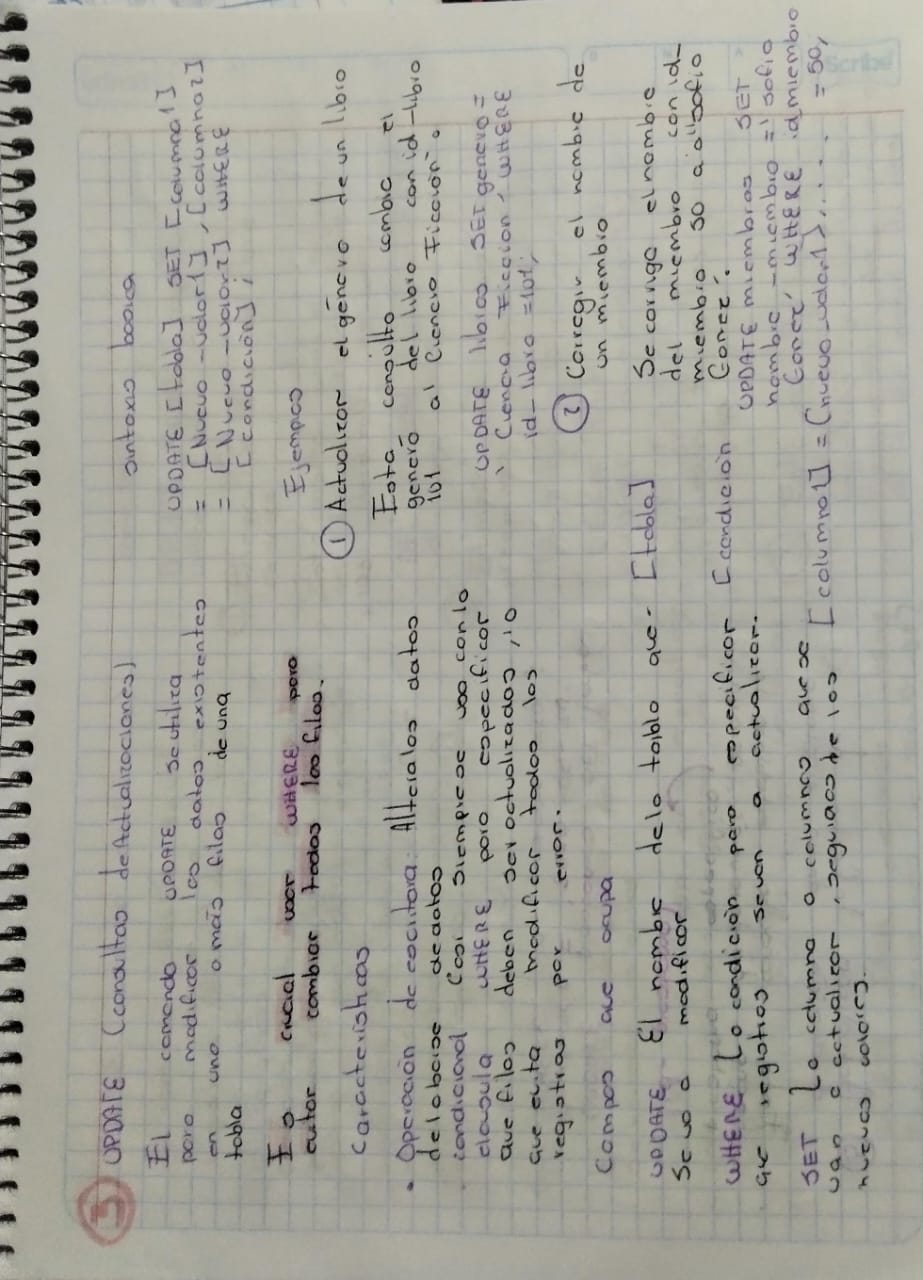 3 UPDATE (consultas de Actualizaciones)
El comando UPDATE se utiliza
para modificar los datos existentes
en una o más filas de una
tabla
Es crucial usar WHERE para
evitar cambiar todas las filas.
Características
• Operación de escritura: Altera los datos
de la base de datos
condicional Casi siempre se usa con la
clausula WHERE para especificar
que filas deben ser actualizadas, lo
que evita modificar todos los
registros por error.
Campos que ocupa
UPDATE El nombre de la tabla que
Se va a modificar
[tabla]
WHERE La condición para especificar
que registros se van a actualizar.
[condición
SET La columna o columnas que se
van a actualizar, seguidas de los
nuevos valores.
[columna1] = (nuevo_valor1>, .... = 50,
sintaxis basica
UPDATE [tabla] SET [columna1]
= [Nuevo-valor1], [columna2]
= [Nuevo-valor2] WHERE
[condición];
Ejempos
1 Actualizar el género de un libro
Esta consulta cambia el
genero del libro con id-libro
101 a "Ciencia Ficción".
UPDATE libros SET genero =
'Ciencia Ficcion' WHERE
id-libro = 101;
2 Corregir el nombre de
un miembro
Se corrige el nombre
del miembro con id_
miembro 50 a "Sofia
Gomez".
UPDATE miembros SET
nombre-miembro = 'Sofia
Gomez' WHERE id_miembro